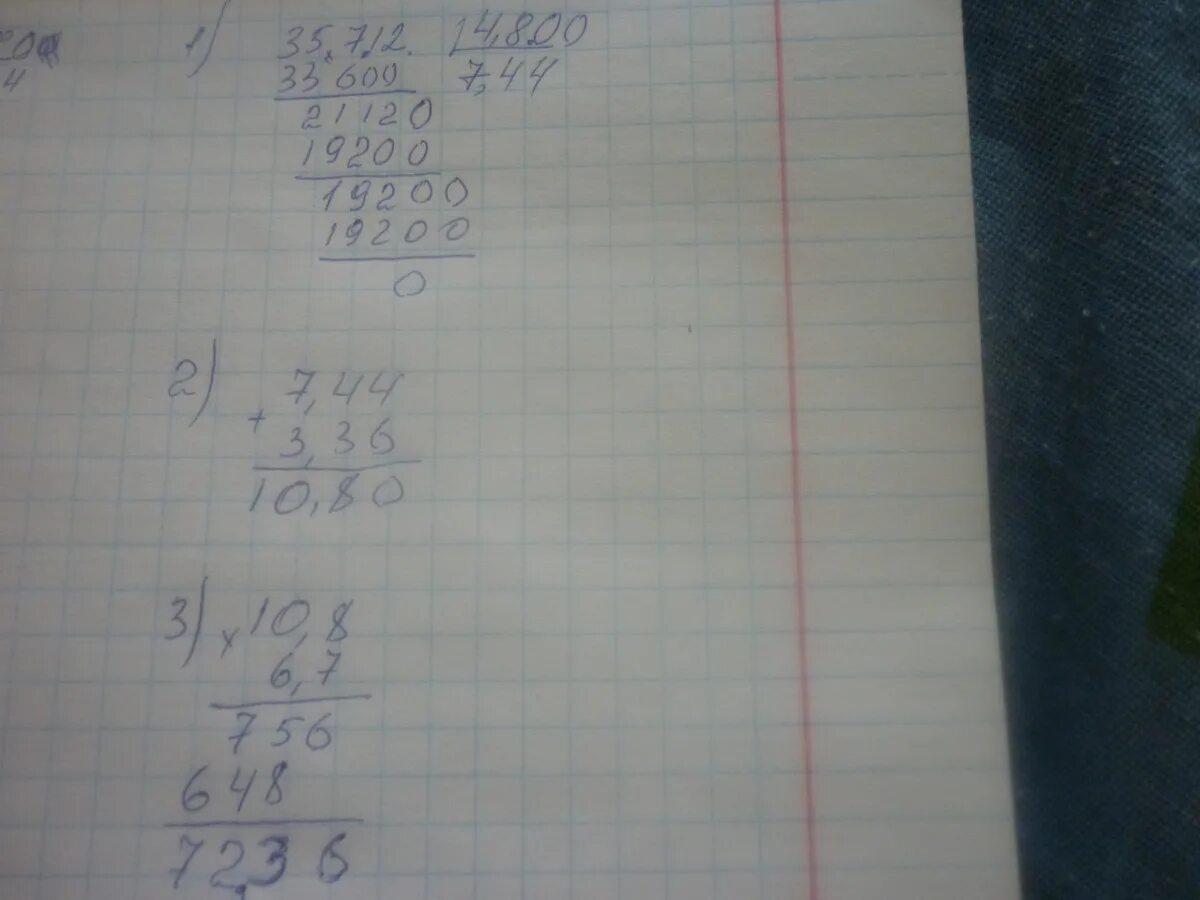 1) 35,712 4,800
33 600 7,44
21120
19200
19200
19200
0
2) 7,44
+
3,36
10,80
3) × 10,8
6,7
756
648
72,36